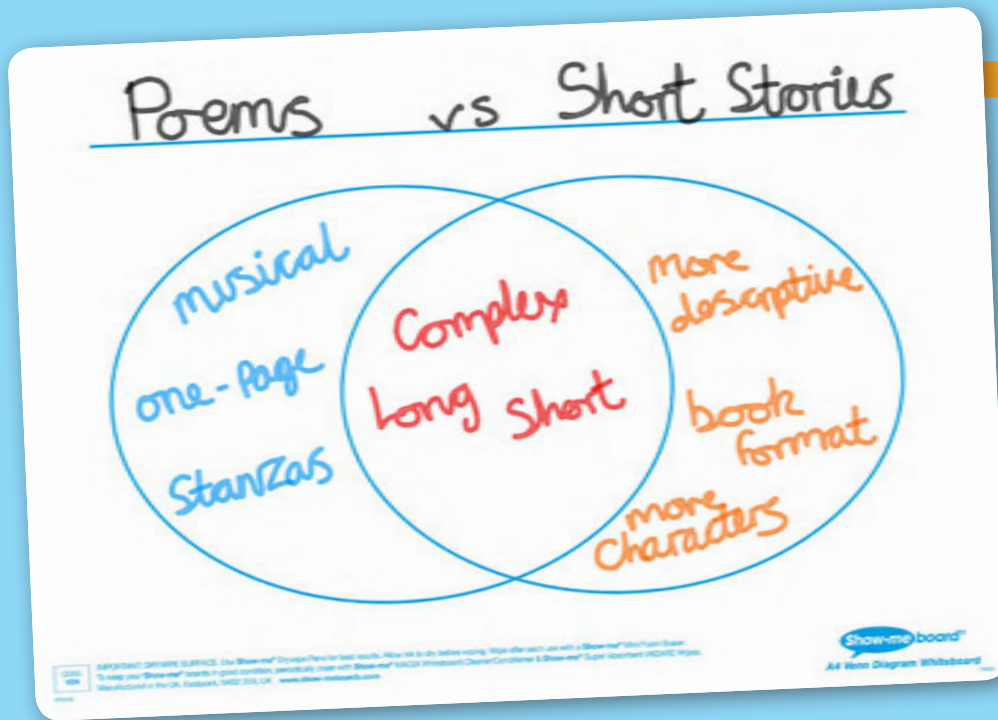 Poems vs Short Stories
musical
one-Page
Stanzas
Complex
Long Short
more
descriptive
book
format
more
Characters
Show-me board
A4 Venn Diagram Whiteboard
www.show-meboards.com